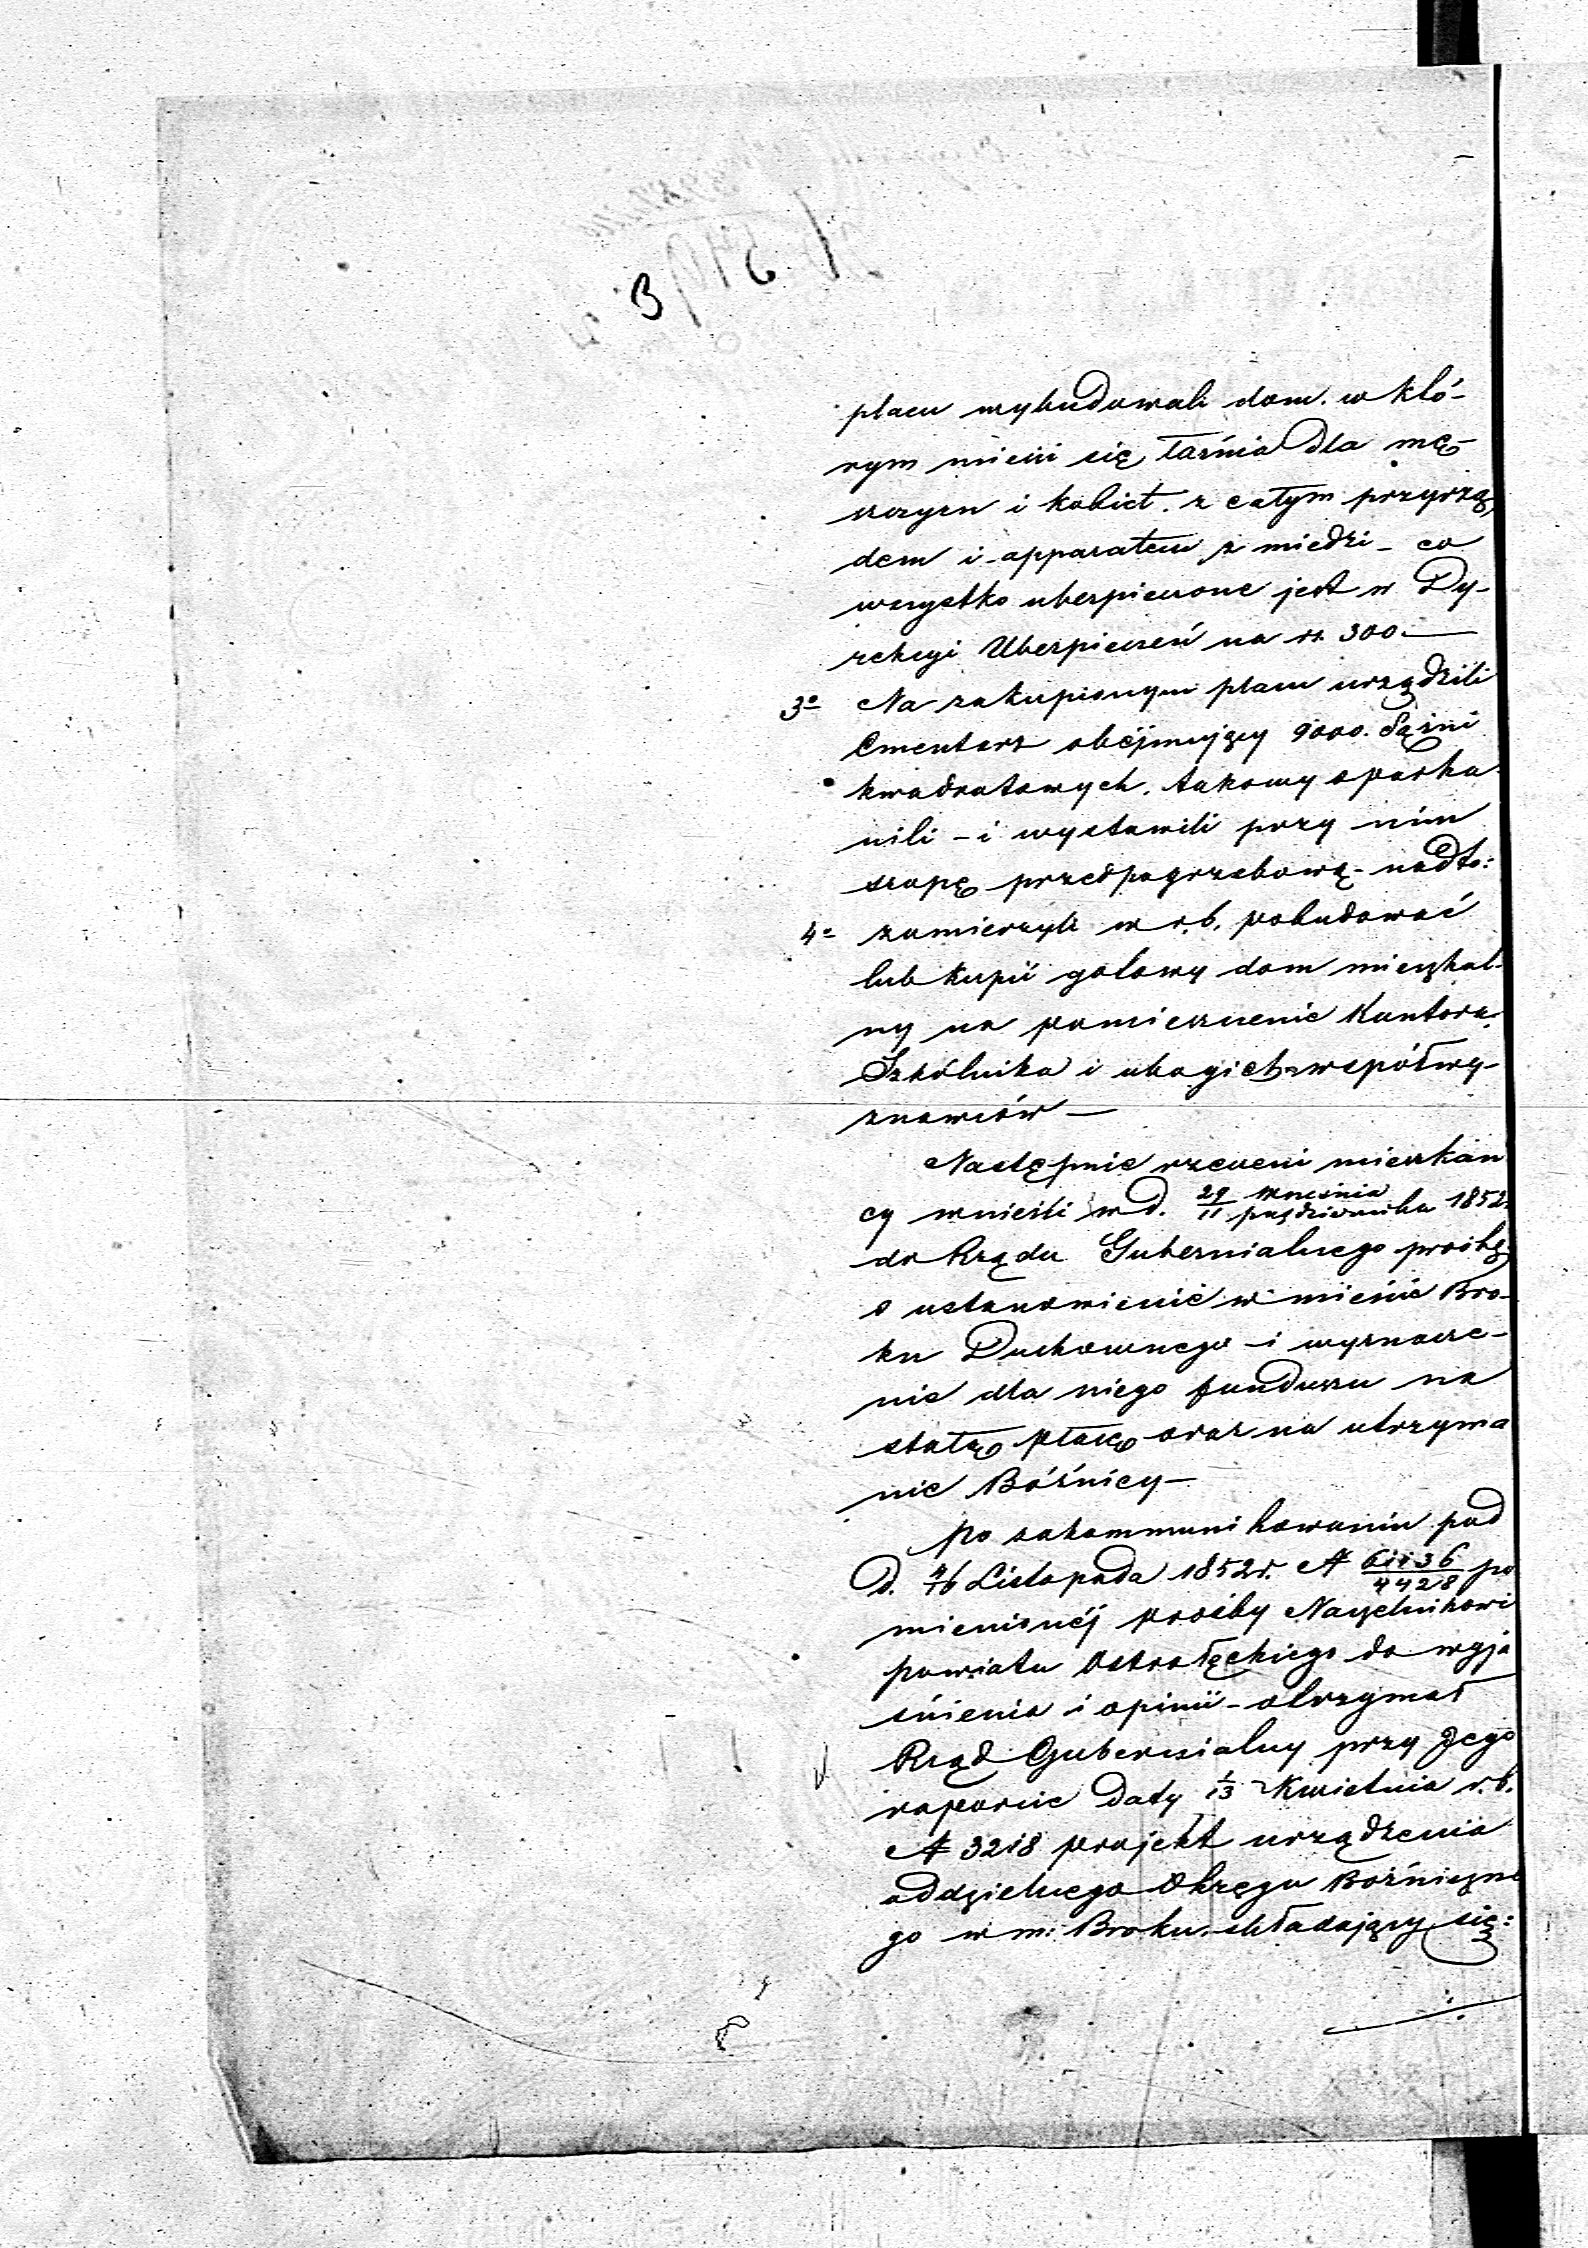 placu wybudowali dom. w któ-
rym mieści się łaźnia dla mę-
szczyzn i kobiet. z całym przyrzą
dem i apparatem z miedzi - co
wszystko ubespieczone jest w Dy-
rekcyi Ubespieczeń na rs. 300.—
3o Na zakupionym placu urządzili
Cmentarz obéjmujący 9000. Sążni
kwadratowych. takowy oparka-
nili - i wystawili przy nim
szopę przedpogrzebową - nadto:
4o zamierzyli w r.b. pobudować
lub kupić gotowy dom mieszkal-
ny na pomieszczenie Kantora.
Szkólnika i ubogich współwy-
znawców —
Następnie rzeczeni mieszkań
cy wnieśli w d. 29/11 Września/października 1852.
do Rządu Gubernialnego prośbę
o ustanowienie w mieście Bro-
ku Duchownego - i wyznacze-
nie dla niego funduszu na
stałą płacę oraz na utrzyma
nie Bóźnicy —
Po zakommunikowaniu pod
d. 4/16 Listopada 1852 r. N 61136/4428 po
mienionéj prośby Naczelnikowi
powiatu Ostrołęckiego do wyja
śnienia i opinii - otrzymał
Rząd Gubernialny przy Jego
raporcie daty 1/13 Kwietnia r.b.
N 3218 projekt urządzenia
oddzielnego Okręgu Bożniczne
go w m: Broku. składający się: